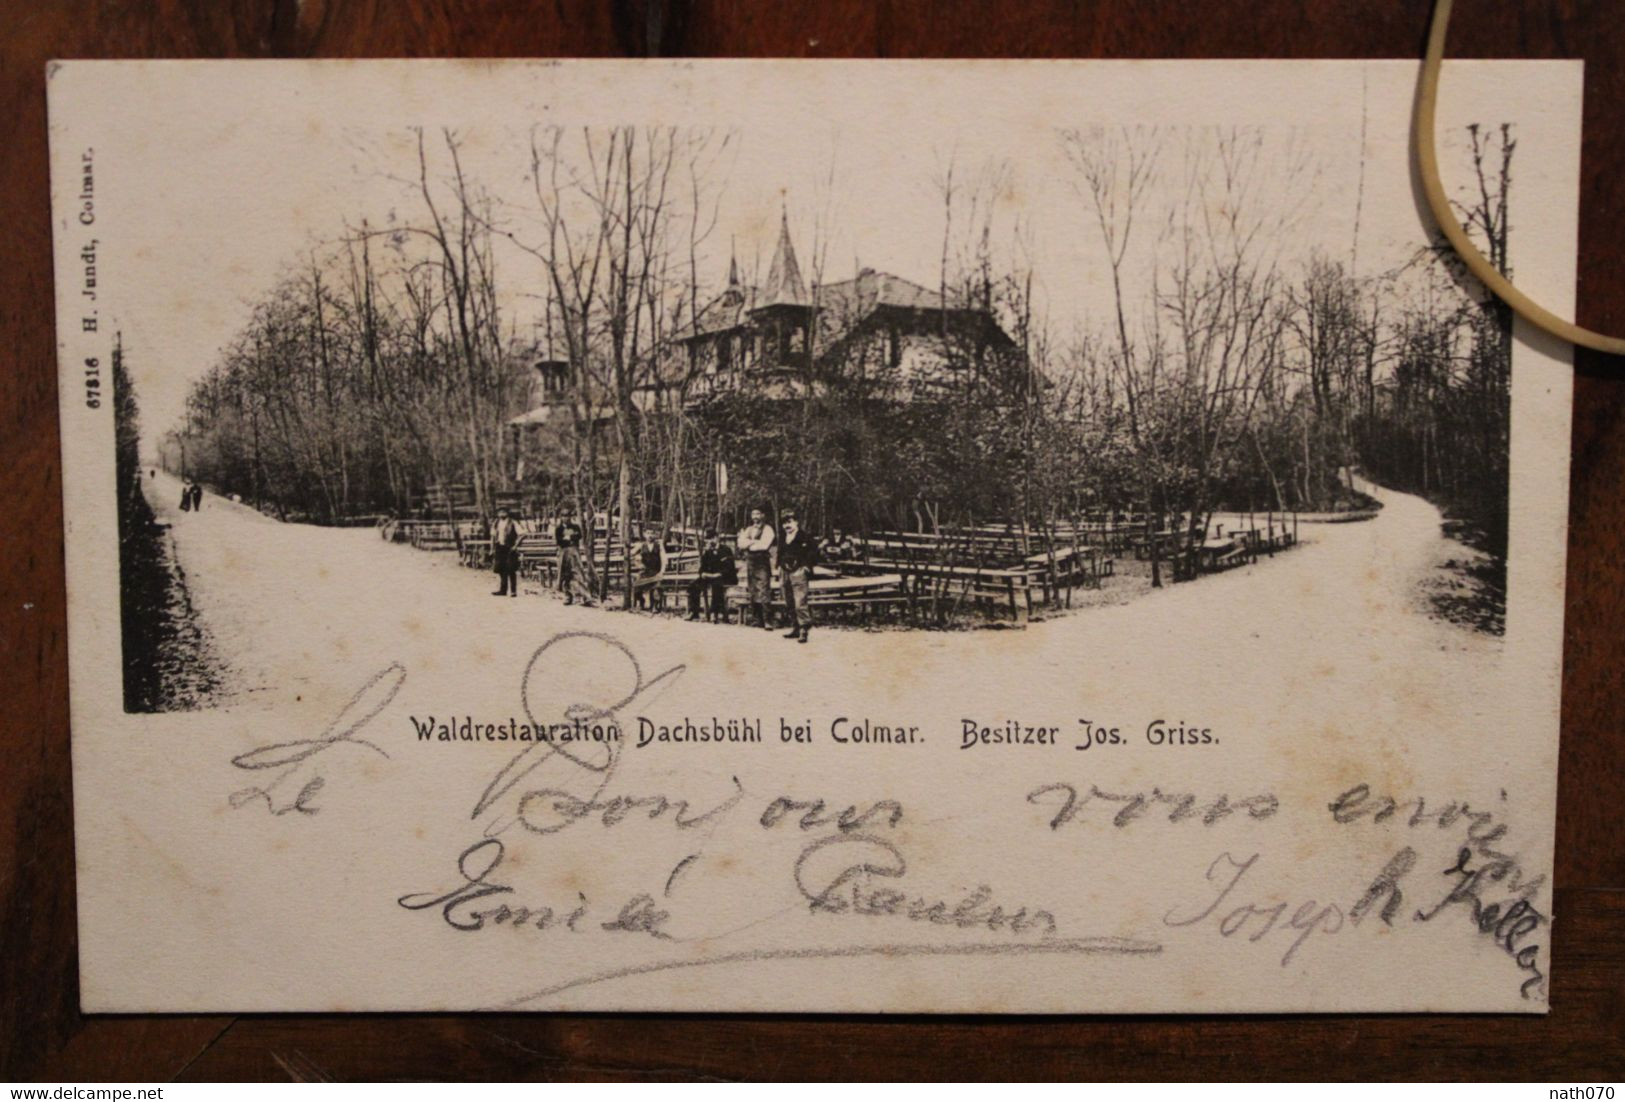 67316 H. Jundt, Colmar.
Waldrestauration Dachsbühl bei Colmar. Besitzer Jos. Griss.
Le Bonjour vous envien
Emilé Joseph Kellor
delcampe.net
nath070